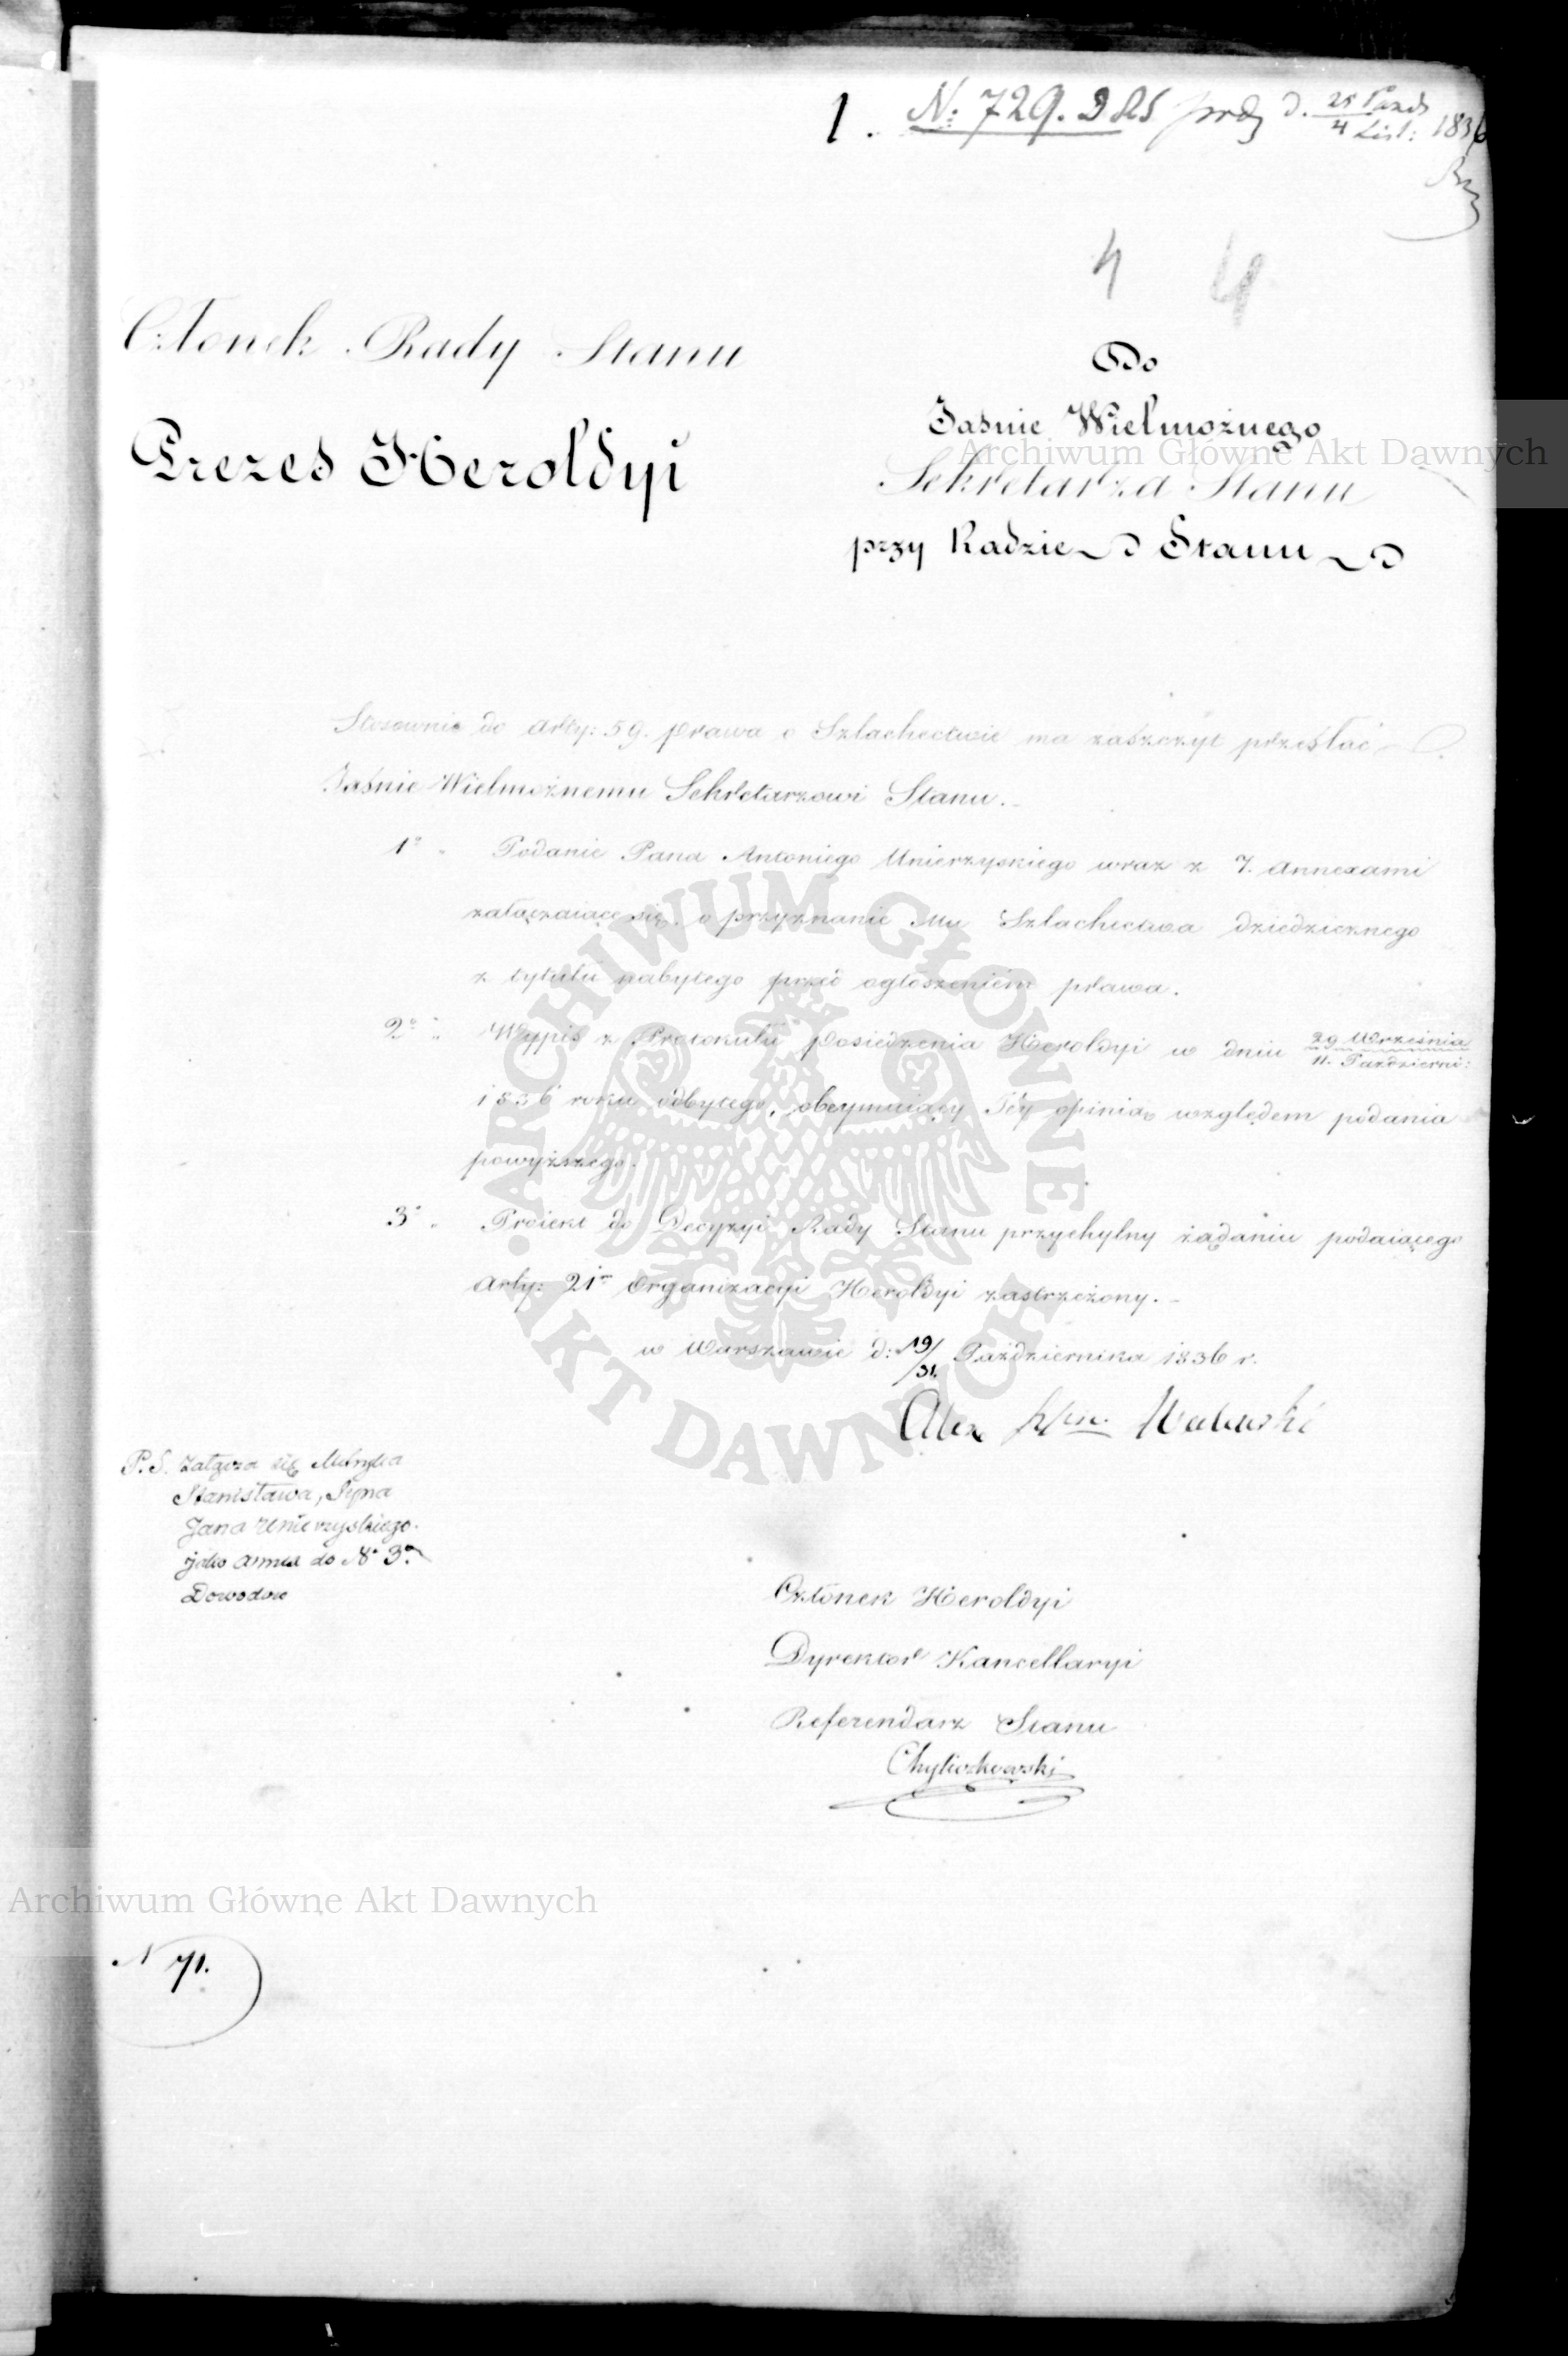 1. N: 729. D R S prez d. 25 Paźd / 4 List: 1836
4 4
Członek Rady Stanu
Prezes Heroldyi
Do
Jaśnie Wielmożnego
Sekretarza Stanu
przy Radzie Stanu
Archiwum Główne Akt Dawnych
Stosownie do Arty: 59. prawa o Szlachectwie ma zaszczyt przesłać
Jaśnie Wielmożnemu Sekretarzowi Stanu.
1° Podanie Pana Antoniego Unierzyskiego wraz z 7. Annexami
załączaiące się, o przyznanie Mu Szlachectwa dziedzicznego
z tytułu nabytego przed ogłoszeniem prawa.
2° Wypis z Protokułu Posiedzenia Heroldyi w dniu 29 Września / 11. Październi:
1836 roku odbytego, obeymuiący Jéy opinią względem podania
powyższego.
3° Proiekt do Decyzyi Rady Stanu przychylny żądaniu podaiącego
Arty: 21m Organizacyi Heroldyi zastrzeżony.
w Warszawie d: 19/31. Października 1836 r.
Alex Walewski
P.S. Załącza się Metryka
Stanisława, Syna
Jana Unierzyskiego
jako annex do N° 3°
Dowodow
Członek Heroldyi
Dyrektor Kancellaryi
Referendarz Stanu
Chyliczkowski
Archiwum Główne Akt Dawnych
N 71.
ARCHIWUM GŁÓWNE
AKT DAWNYCH